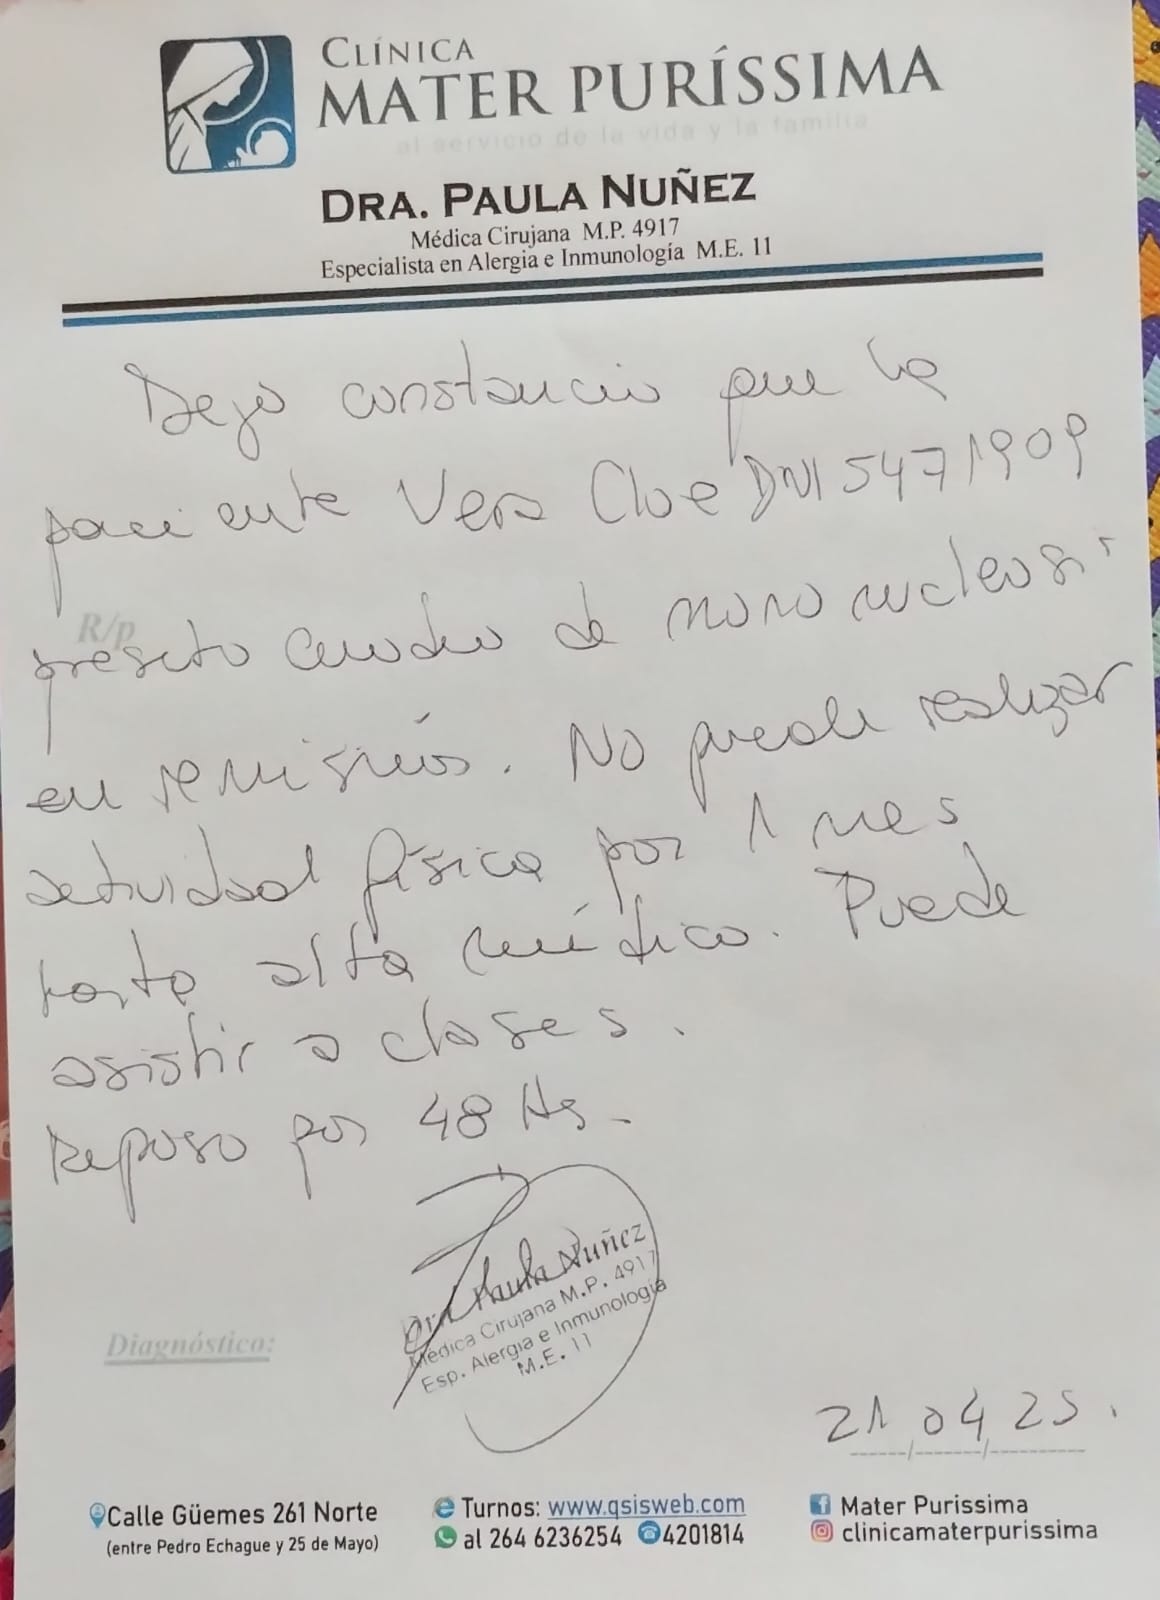 CLÍNICA
MATER PURÍSSIMA
al servicio de la vida y la familia
DRA. PAULA NUÑEZ
Médica Cirujana M.P. 4917
Especialista en Alergia e Inmunología M.E. 11
Dejo constancia que la
paciente Vera Cloe DNI 5471909
R/p
presento cuadro de mononucleosis
en remisión. No puede realizar
actividad física por 1 mes
hasta alta médico. Puede
asistir a clases.
Reposo por 48 Hs.
Dra Paula Nuñez
Médica Cirujana M.P. 4917
Esp. Alergia e Inmunología
M.E. 11
Diagnóstico:
21/04/25.
Calle Güemes 261 Norte
(entre Pedro Echague y 25 de Mayo)
Turnos: www.qsisweb.com
al 264 6236254 4201814
Mater Purissima
clinicamaterpurissima